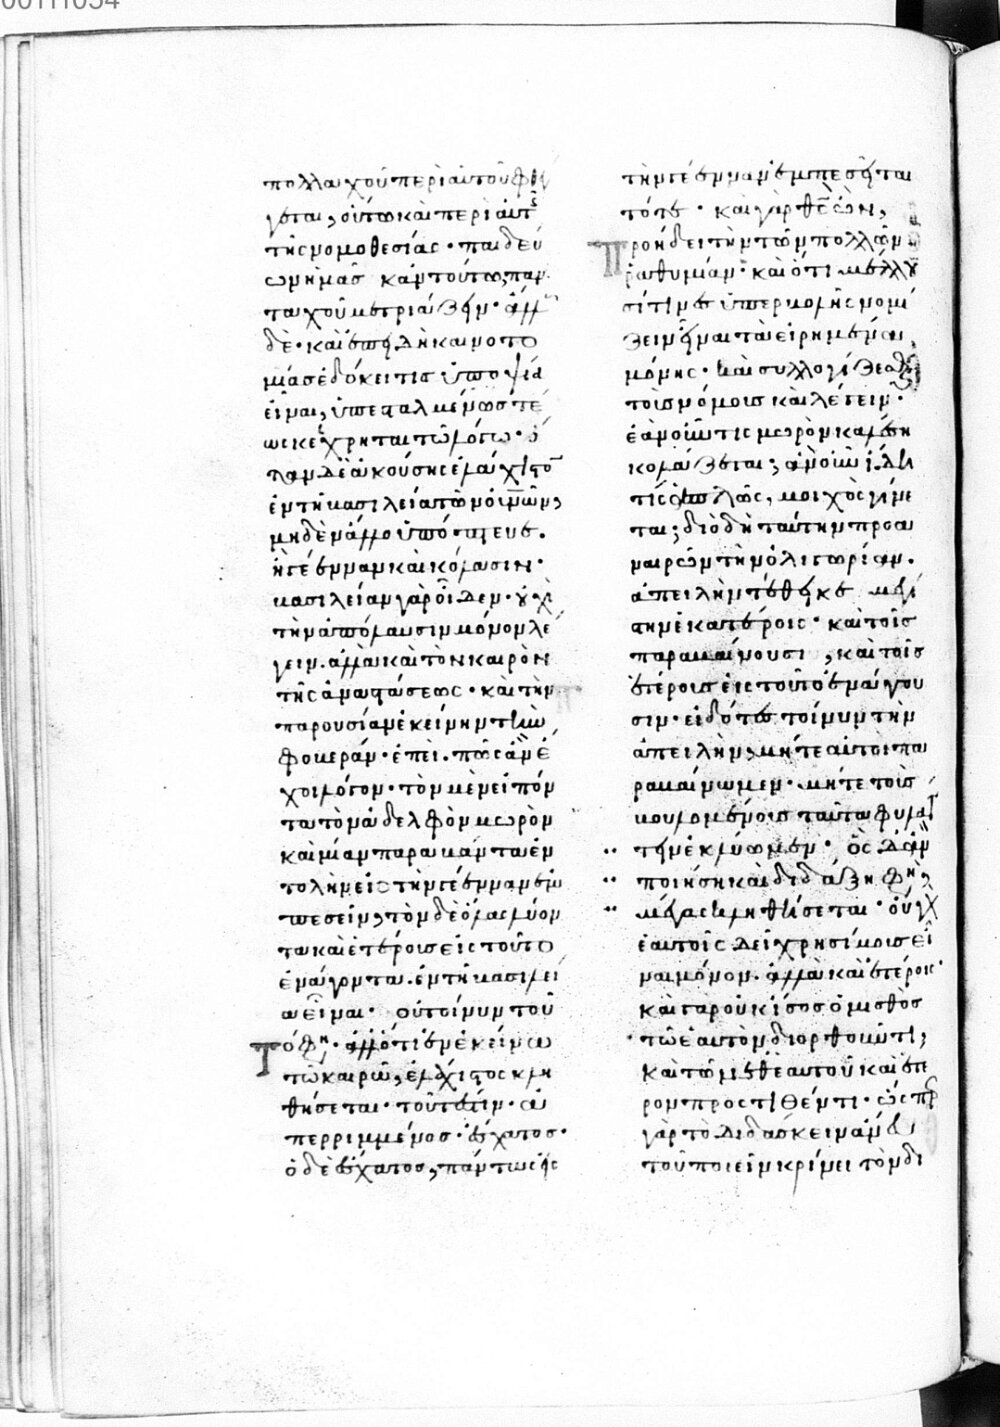 00111054
πολλαχοῦ περὶ αὐτοῦ φθέγ
γεται, οὕτω καὶ περὶ αὐτ
τῆς νομοθεσίας· παιδεύ
ων ἡμᾶς κἂν τούτω, παν
ταχοῦ μετριάζειν· ἄλλως
δὲ· καὶ ἐπειδὴ καινοτο
μίας ἐδόκει τις ὑποψία
εἶναι, ὑπεσταλμένως τέ
ως κέχρηται τῶ λόγω· ὅ
ταν δὲ ἀκούσης ἐλάχιστον
ἐν τῆ βασιλεία τῶν οὐνῶν,
μηδὲν ἄλλο ὑπόπτευε.
ἢ γέενναν καὶ κόλασιν·
βασιλείαν γὰρ οἶδεν· οὐχὶ
τὴν ἀπόλαυσιν μόνον λέ
γειν. ἀλλὰ καὶ τὸν καιρὸν
τῆς ἀναστάσεως· καὶ τὴν
παρουσίαν ἐκείνην τὴν
φοβεράν· ἐπεὶ. πῶς ἂν ἔ
χοι λόγον· τὸν μὲν εἰπόν
τα τὸν ἀδελφὸν μωρὸν
καὶ μίαν παραβάντα ἐν
τολὴν εἰς τὴν γέενναν ἐμ
πεσεῖν, τὸν δὲ ὅλας λύον
τα καὶ ἑτέροις εἰς τοῦτο
ἐνάγοντα. ἐν τῆ βασιλεί
α εἶναι· οὐ τοίνυν τοῦ
τό φη· ἀλλ' ὅτι ἐν ἐκείνω
τῶ καιρῶ, ἐλάχιστος κλη
θήσεται· τουτέστιν· ἀ
περριμμένος· ἔσχατος·
ὁ δὲ ἔσχατος, πάντως εἰς
τὴν γέενναν ἐμπεσεῖται
τότε· καὶ γὰρ θεὸς ὢν,
προήδει τὴν τῶν πολλῶν
ραθυμίαν· καὶ ὅτι μέλλου
σί τινες ὑπερβολῆς νομί
ζειν εἶναι τὰ εἰρημένα
μόνης· καὶ συλλογίζεσθαι
τοῖς νόμοις καὶ λέγειν·
ἐὰν οὖν τις μωρὸν καλέση
κολάζεται; ἂν οὖν ἴδη
τίς ἁπλῶς, μοιχὸς γίνε
ται; διὸ δὴ ταύτην προα
ναιρῶν τὴν ὀλιγωρίαν.
ἀπειλὴν τέθηκε μεγί
στην ἑκατέροις· καὶ τοῖς
παραβαίνουσι, καὶ τοῖς
ἑτέροις εἰς τοῦτο ἐνάγου
σιν· εἰδότες τοίνυν τὴν
ἀπειλὴν, μήτε αὐτοὶ πα
ραβαίνωμεν· μήτε τοῖς
βουλομένοις ταῦτα φυλάτ
τειν ἐκλύωμεν· ὃς δ' ἂν
ποιήση καὶ διδάξη φη,
μέγας κληθήσεται· οὐ γὰρ
ἑαυτοῖς δεῖ χρησίμοις εἶ
ναι μόνον. ἀλλὰ καὶ ἑτέροις·
καὶ γὰρ οὐκ ἴσος ὁ μισθὸς
τῶ ἑαυτὸν διορθοῦντι,
καὶ τῶ μεθ' ἑαυτοῦ καὶ ἕτε
ρον προστιθέντι· ὥσπερ
γὰρ τὸ διδάσκειν ἄνευ
τοῦ ποιεῖν κρίνει τὸν δι